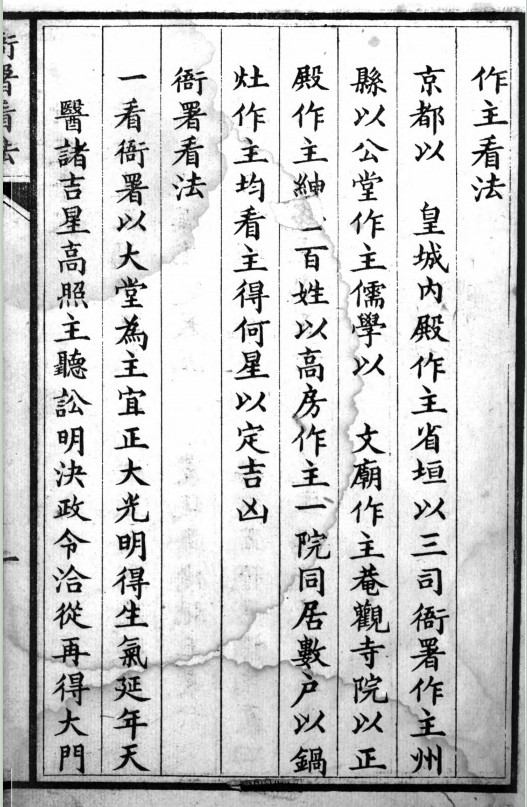 作主看法
京都以 皇城内殿作主省垣以三司衙署作主州
縣以公堂作主儒學以 文廟作主菴觀寺院以正
殿作主紳 百姓以高房作主一院同居數户以鍋
灶作主均看主得何星以定吉凶
衙署看法
一看衙署以大堂為主宜正大光明得生氣延年天
醫諸吉星高照主聽訟明決政令洽從再得大門
衙署看法